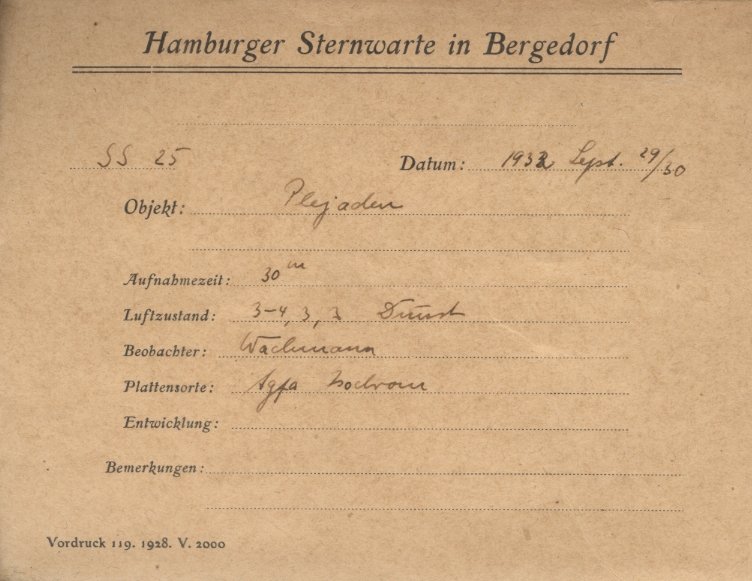 Hamburger Sternwarte in Bergedorf
SS 25 Datum: 1932 Sept. 29/30
Objekt: Plejaden
Aufnahmezeit: 30 m
Luftzustand: 3-4, 3, 3 Dunst
Beobachter: Wachmann
Plattensorte: Agfa Isochrom
Entwicklung:
Bemerkungen:
Vordruck 119. 1928. V. 2000